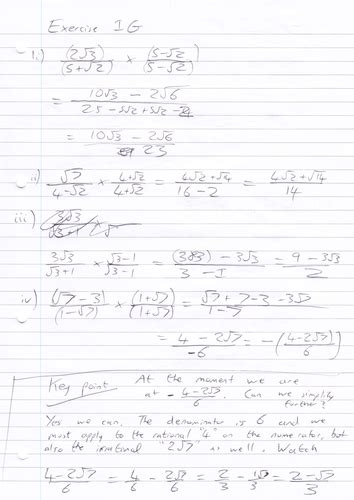 Exercise 1G
i) (2√3)/(5+√2) × (5-√2)/(5-√2)
= (10√3 - 2√6)/(25 - 5√2 + 5√2 - 2)
= (10√3 - 2√6)/23
ii) √7/(4-√2) × (4+√2)/(4+√2) = (4√2+√14)/(16-2) = (4√2+√14)/14
iii) 3√3/(√3+1) ×
3√3/(√3+1) × (√3-1)/(√3-1) = ((3×3) - 3√3)/(3-1) = (9-3√3)/2
iv) (√7-3)/(1-√7) × (1+√7)/(1+√7) = (√7+7-3-3√7)/(1-7)
= (4-2√7)/-6 = -((4-2√7)/6)
Key point At the moment we are
at -(4-2√7)/6. Can we simplify
further?
Yes we can. The denominator is 6 and we
must apply to the rational "4" on the numerator, but
also the irrational "2√7" as well. Watch
(4-2√7)/6 = 4/6 - 2√7/6 = 2/3 - √7/3 = (2-√7)/3